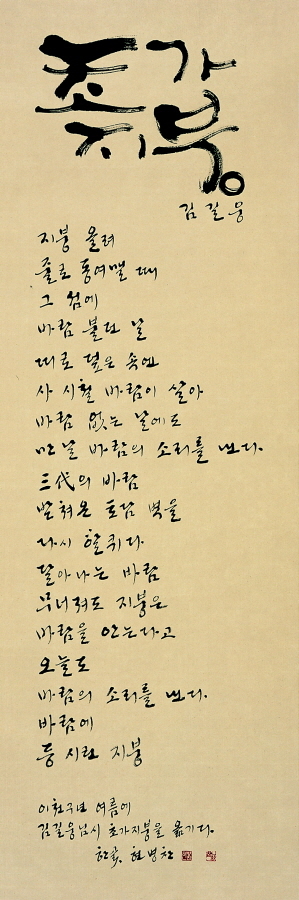 초가
지붕
김길웅
지붕 올려
줄로 동여맬 때
그 섬에
바람 불던 날
띠로 덮은 속엔
사시철 바람이 살아
바람 없는 날에도
만날 바람의 소리를 낸다.
三代의 바람
받혀온 토담 벽을
다시 할퀴다
달아나는 바람
무너져도 지붕은
바람을 안는다고
오늘도
바람의 소리를 낸다.
바람에
등 시린 지붕
이천구년 여름에
김길웅님시 초가지붕을 옮기다.
한곬 현병찬